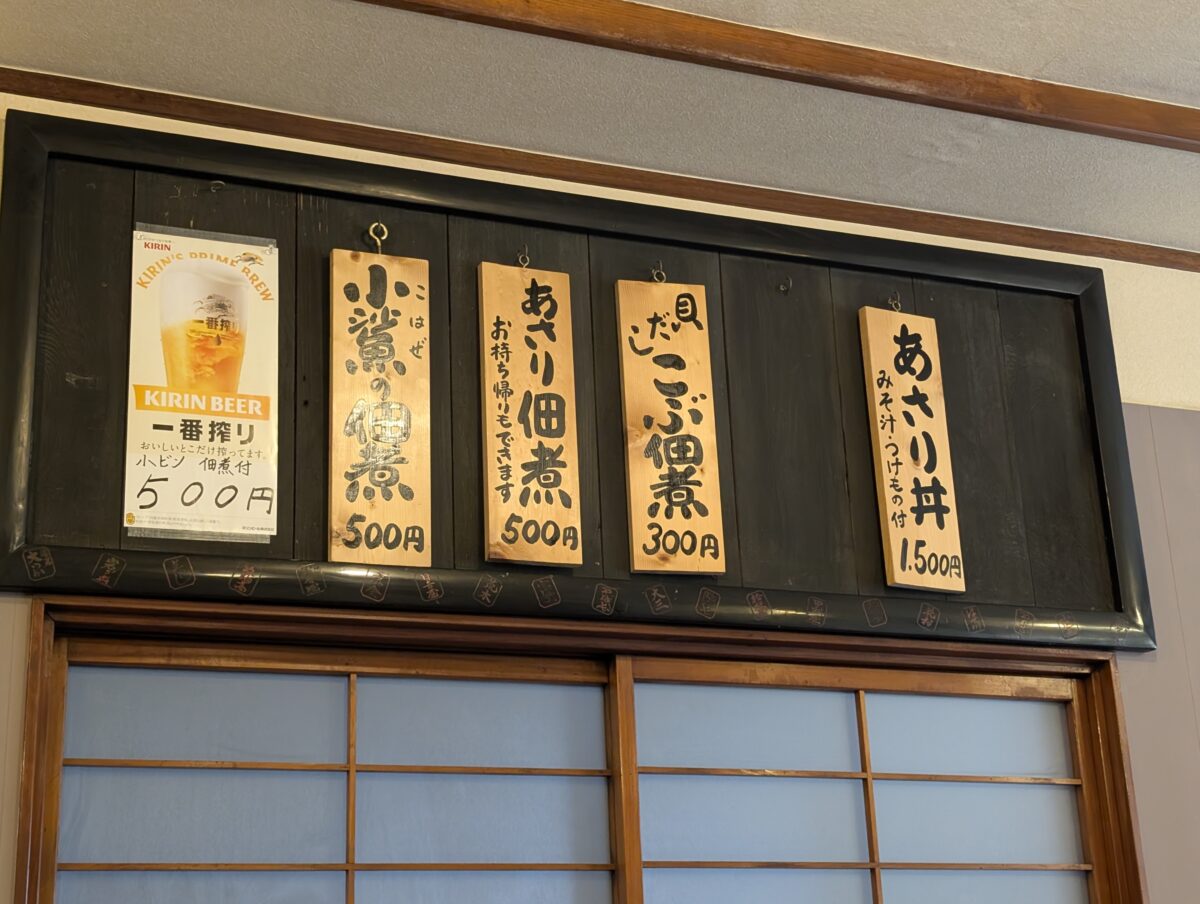 KIRIN
KIRIN'S PRIME BREW
一番搾り
KIRIN BEER
一番搾り
おいしいとこだけ搾ってます。
小ビン 佃煮付
500円
小鯊の佃煮
こはぜ
500円
あさり佃煮
お持ち帰りもできます
500円
貝だし
こぶ佃煮
300円
あさり丼
みそ汁・つけもの付
1.500円